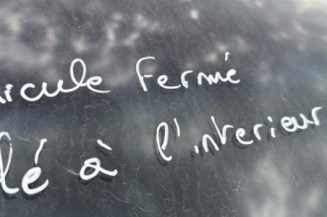 icule Fermé
lé à l'interieur